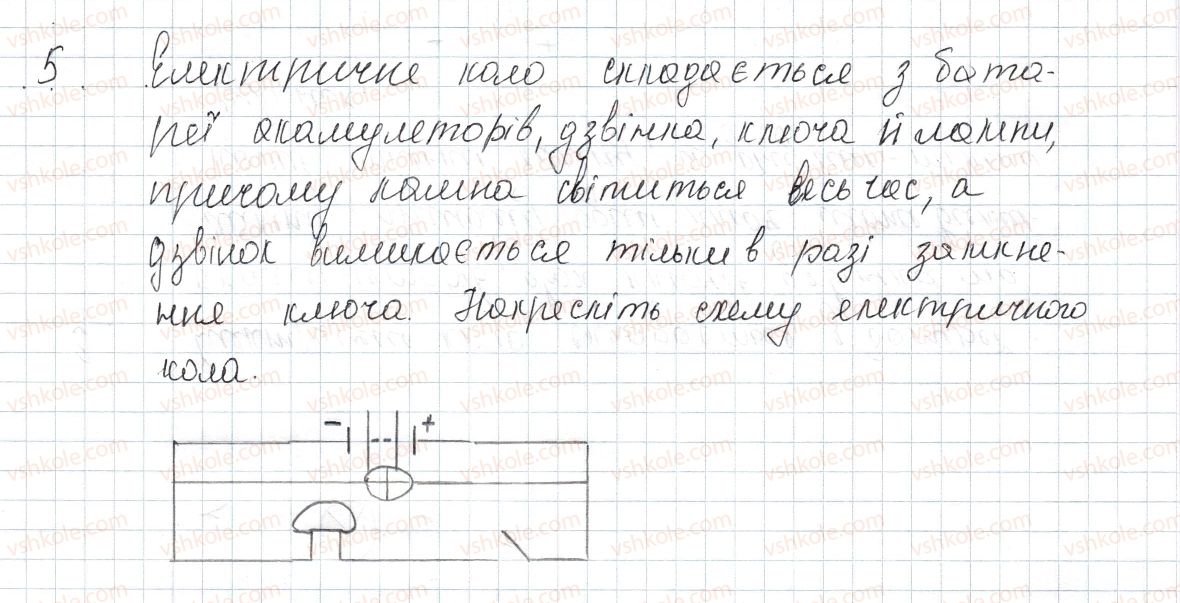 5. Електричне коло складається з бата-
реї акамулеторів, дзвінка, ключа й лампи,
причому лампа світиться весь час, а
дзвінок вимикається тільки в разі замкне-
ння ключа. Накресліть схему електричного
кола.
- +
vshkole.com